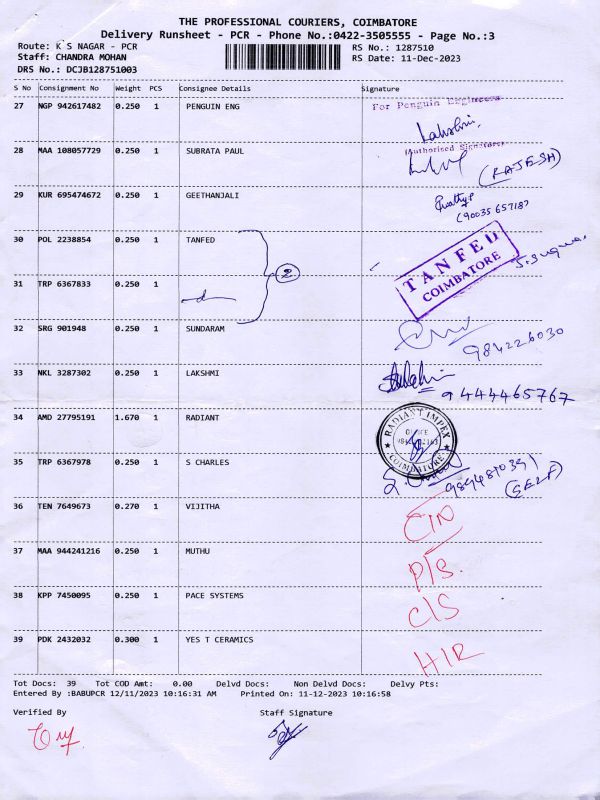 THE PROFESSIONAL COURIERS, COIMBATORE
Delivery Runsheet - PCR - Phone No.:0422-3505555 - Page No.:3
Route: K S NAGAR - PCR
RS No.: 1287510
Staff: CHANDRA MOHAN
RS Date: 11-Dec-2023
DRS No.: DCJB128751003
S No Consignment No Weight PCS Consignee Details Signature
27 NGP 942617482 0.250 1 PENGUIN ENG
For Penguin Engineers
Lakshmi.
Authorised Signatory
28 MAA 108057729 0.250 1 SUBRATA PAUL
(RAJESH)
29 KUR 695474672 0.250 1 GEETHANJALI
(90035 65718)
30 POL 2238854 0.250 1 TANFED
TANFED
COIMBATORE
31 TRP 6367833 0.250 1
2
32 SRG 901948 0.250 1 SUNDARAM
984226030
33 NKL 3287302 0.250 1 LAKSHMI
9444465767
34 AMD 27795191 1.670 1 RADIANT
RADIANT IMPEX
COIMBATORE
35 TRP 6367978 0.250 1 S CHARLES
9894810391
(SELF)
36 TEN 7649673 0.270 1 VIJITHA
37 MAA 944241216 0.250 1 MUTHU
P/S.
38 KPP 7450095 0.250 1 PACE SYSTEMS
C/S
39 PDK 2432032 0.300 1 YES T CERAMICS
H/R
Tot Docs: 39 Tot COD Amt: 0.00 Delvd Docs: Non Delvd Docs: Delvy Pts:
Entered By :BABUPCR 12/11/2023 10:16:31 AM Printed On: 11-12-2023 10:16:58
Verified By Staff Signature